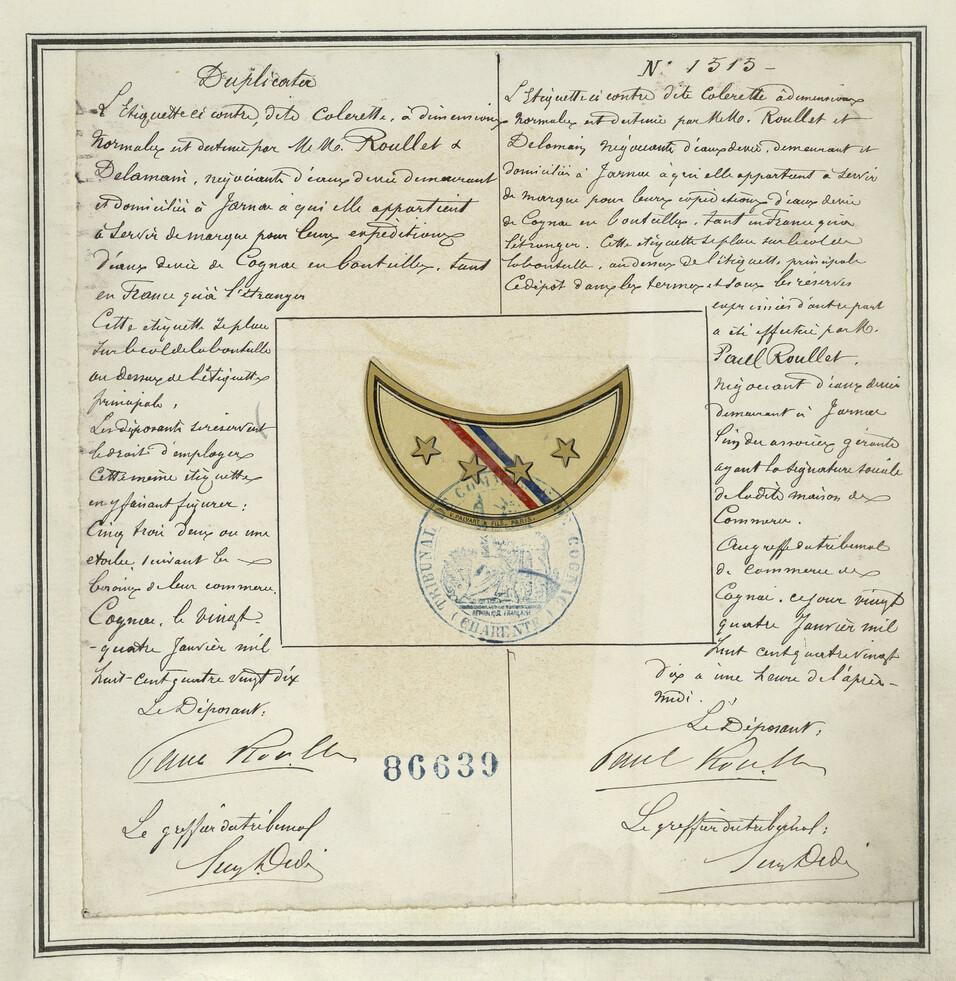 Duplicata
L'Etiquette ci contre, dite Colerette, à dimensions
normales est destinée par M.M. Roullet &
Delamain, négociants d'eaux de vie demeurant
et domiciliés à Jarnac à qui elle appartient
à servir de marque pour leurs expéditions
d'eaux de vie de Cognac en bouteilles, tant
en France qu'à l'étranger
Cette étiquette se place
sur le col de la bouteille
au dessus de l'étiquette
principale.
Les déposants se réservent
le droit d'employer
Cette même étiquette
en y faisant figurer:
Cinq trois deux ou une
etoile, suivant les
besoins de leur commerce.
Cognac, le vingt-
-quatre Janvier mil
huit-cent quatre vingt dix
Le Déposant:
Paul Roullet
Le greffier du tribunal
N° 1515-
L'Etiquette ci contre dite Colerette à dimensions
normales est destinée par M.M. Roullet et
Delamain négociants d'eaux de vie, demeurant et
domiciliés à Jarnac à qui elle appartient à servir
de marque pour leurs expéditions d'eaux de vie
de Cognac en bouteilles, tant en France qu'à
l'étranger. Cette étiquette se place sur le col de
la bouteille, au dessus de l'étiquette principale
Ce dépôt dans les termes et sous les réserves
exprimées d'autre part
a été effectué par M.
Paul Roullet,
négociant d'eaux de vie
demeurant à Jarnac
l'un des associés gérants
ayant la signature sociale
de la dite maison de
Commerce.
Au greffe du tribunal
de commerce de
Cognac, ce jour vingt
quatre Janvier mil
huit cent quatre vingt
dix à une heure de l'après-
midi.
Le Déposant:
Paul Roullet
Le greffier du tribunal:
& FILS. PARIS
TRIBUNAL DE COMMERCE DE COGNAC
REPUBLIQUE FRANÇAISE
(CHARENTE)
86639